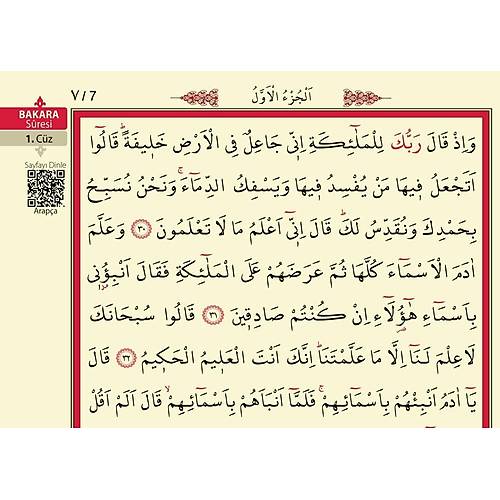 ٧/7
اَلْجُزْءُ الْاَوَّلُ
BAKARA
Sûresi
1. Cüz
Sayfayı Dinle
Arapça
وَاِذْ قَالَ رَبُّكَ لِلْمَلٰٓئِكَةِ اِنّ۪ي جَاعِلٌ فِي الْاَرْضِ خَل۪يفَةًۜ قَالُٓوا
اَتَجْعَلُ ف۪يهَا مَنْ يُفْسِدُ ف۪يهَا وَيَسْفِكُ الدِّمَٓاءَۚ وَنَحْنُ نُسَبِّحُ
بِحَمْدِكَ وَنُقَدِّسُ لَكَۜ قَالَ اِنّ۪ٓي اَعْلَمُ مَا لَا تَعْلَمُونَ ﴿٣٠﴾ وَعَلَّمَ
اٰدَمَ الْاَسْمَٓاءَ كُلَّهَا ثُمَّ عَرَضَهُمْ عَلَى الْمَلٰٓئِكَةِ فَقَالَ اَنْبِؤُ۫ن۪ي
بِاَسْمَٓاءِ هٰٓؤُ۬لَٓاءِ اِنْ كُنْتُمْ صَادِق۪ينَ ﴿٣١﴾ قَالُوا سُبْحَانَكَ
لَا عِلْمَ لَنَٓا اِلَّا مَا عَلَّمْتَنَاۜ اِنَّكَ اَنْتَ الْعَل۪يمُ الْحَك۪يمُ ﴿٣٢﴾ قَالَ
يَٓا اٰدَمُ اَنْبِئْهُمْ بِاَسْمَٓائِهِمْۚ فَلَمَّٓا اَنْبَاَهُمْ بِاَسْمَٓائِهِمْۙ قَالَ اَلَمْ اَقُلْ